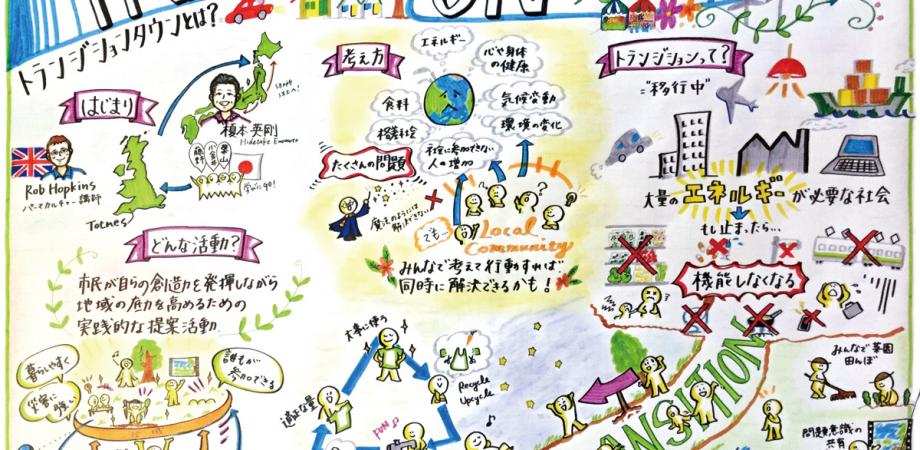 トランジションタウンとは?
はじまり
Rob Hopkins
パーマカルチャー講師
Totnes
榎本英剛
Hidetake Enomoto
藤野
小金井
葉山
学びにGO!
どんな活動?
市民が自らの創造力を発揮しながら
地域の底力を高めるための
実践的な提案活動
暮らしやすく
災害に強い
誰もが
参加できる
考え方
エネルギー
心や身体
の健康
食料
気候変動
格差社会
環境の変化
社会に参加できない
人の増加
たくさんの問題
魔法のように
解決できない
でも…
Local
Community
みんなで考えて行動すれば
同時に解決できるかも!
大事に使う
適正な量
Recycle
Upcycle
FUN♪
トランジションって?
"移行中"
大量のエネルギーが必要な社会
もし止まったら…
機能しなくなる
TRANSITION
みんなで菜園
田んぼ
問題意識の
共有